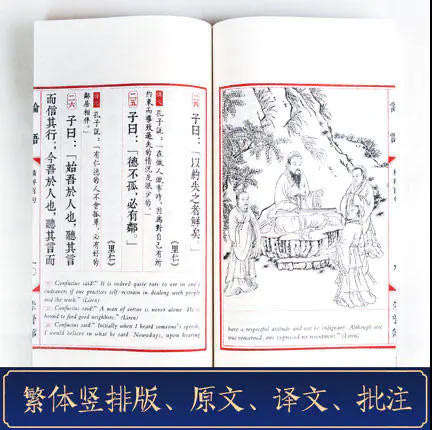 子曰：「以約失之者鮮矣。」
（里仁）
孔子說：「在做人做事時，因為對自己有所
約束而導致過失的情況是很少的。」
二五 子曰：「德不孤，必有鄰。」
（里仁）
孔子說：「有仁德的人不會孤單，必有好的
鄰居相伴。」
二六 子曰：「始吾於人也，聽其言
而信其行；今吾於人也，聽其言而
論語
論語
Confucius said:" It is indeed quite rare to see in one's
if one practises self-restraint in dealing with people
and the work." (Liren)
Confucius said:" A man of virtue is never alone. He is
bound to find good neighbors." (Liren)
Confucius said:" Initially when I heard someone's speech,
I would believe in what he said. Nowadays, upon hearing
have a respectful attitude and not be indignant. Although one
was wearied, one expressed no resentment." (Liren)
繁体竖排版、原文、译文、批注